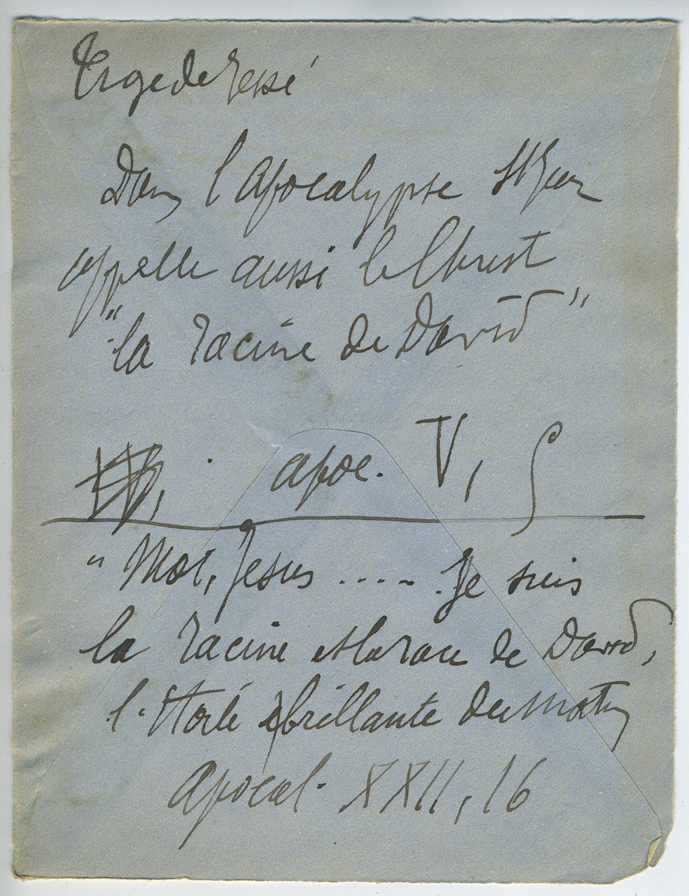 Tige de Jessé
Dans l'Apocalypse St Jean
appelle aussi le Christ
"la racine de David"
apoc. V, 5
"Moi, Jesus ..... Je suis
la racine et la race de David,
l'Etoile brillante du matin
Apocal. XXII, 16